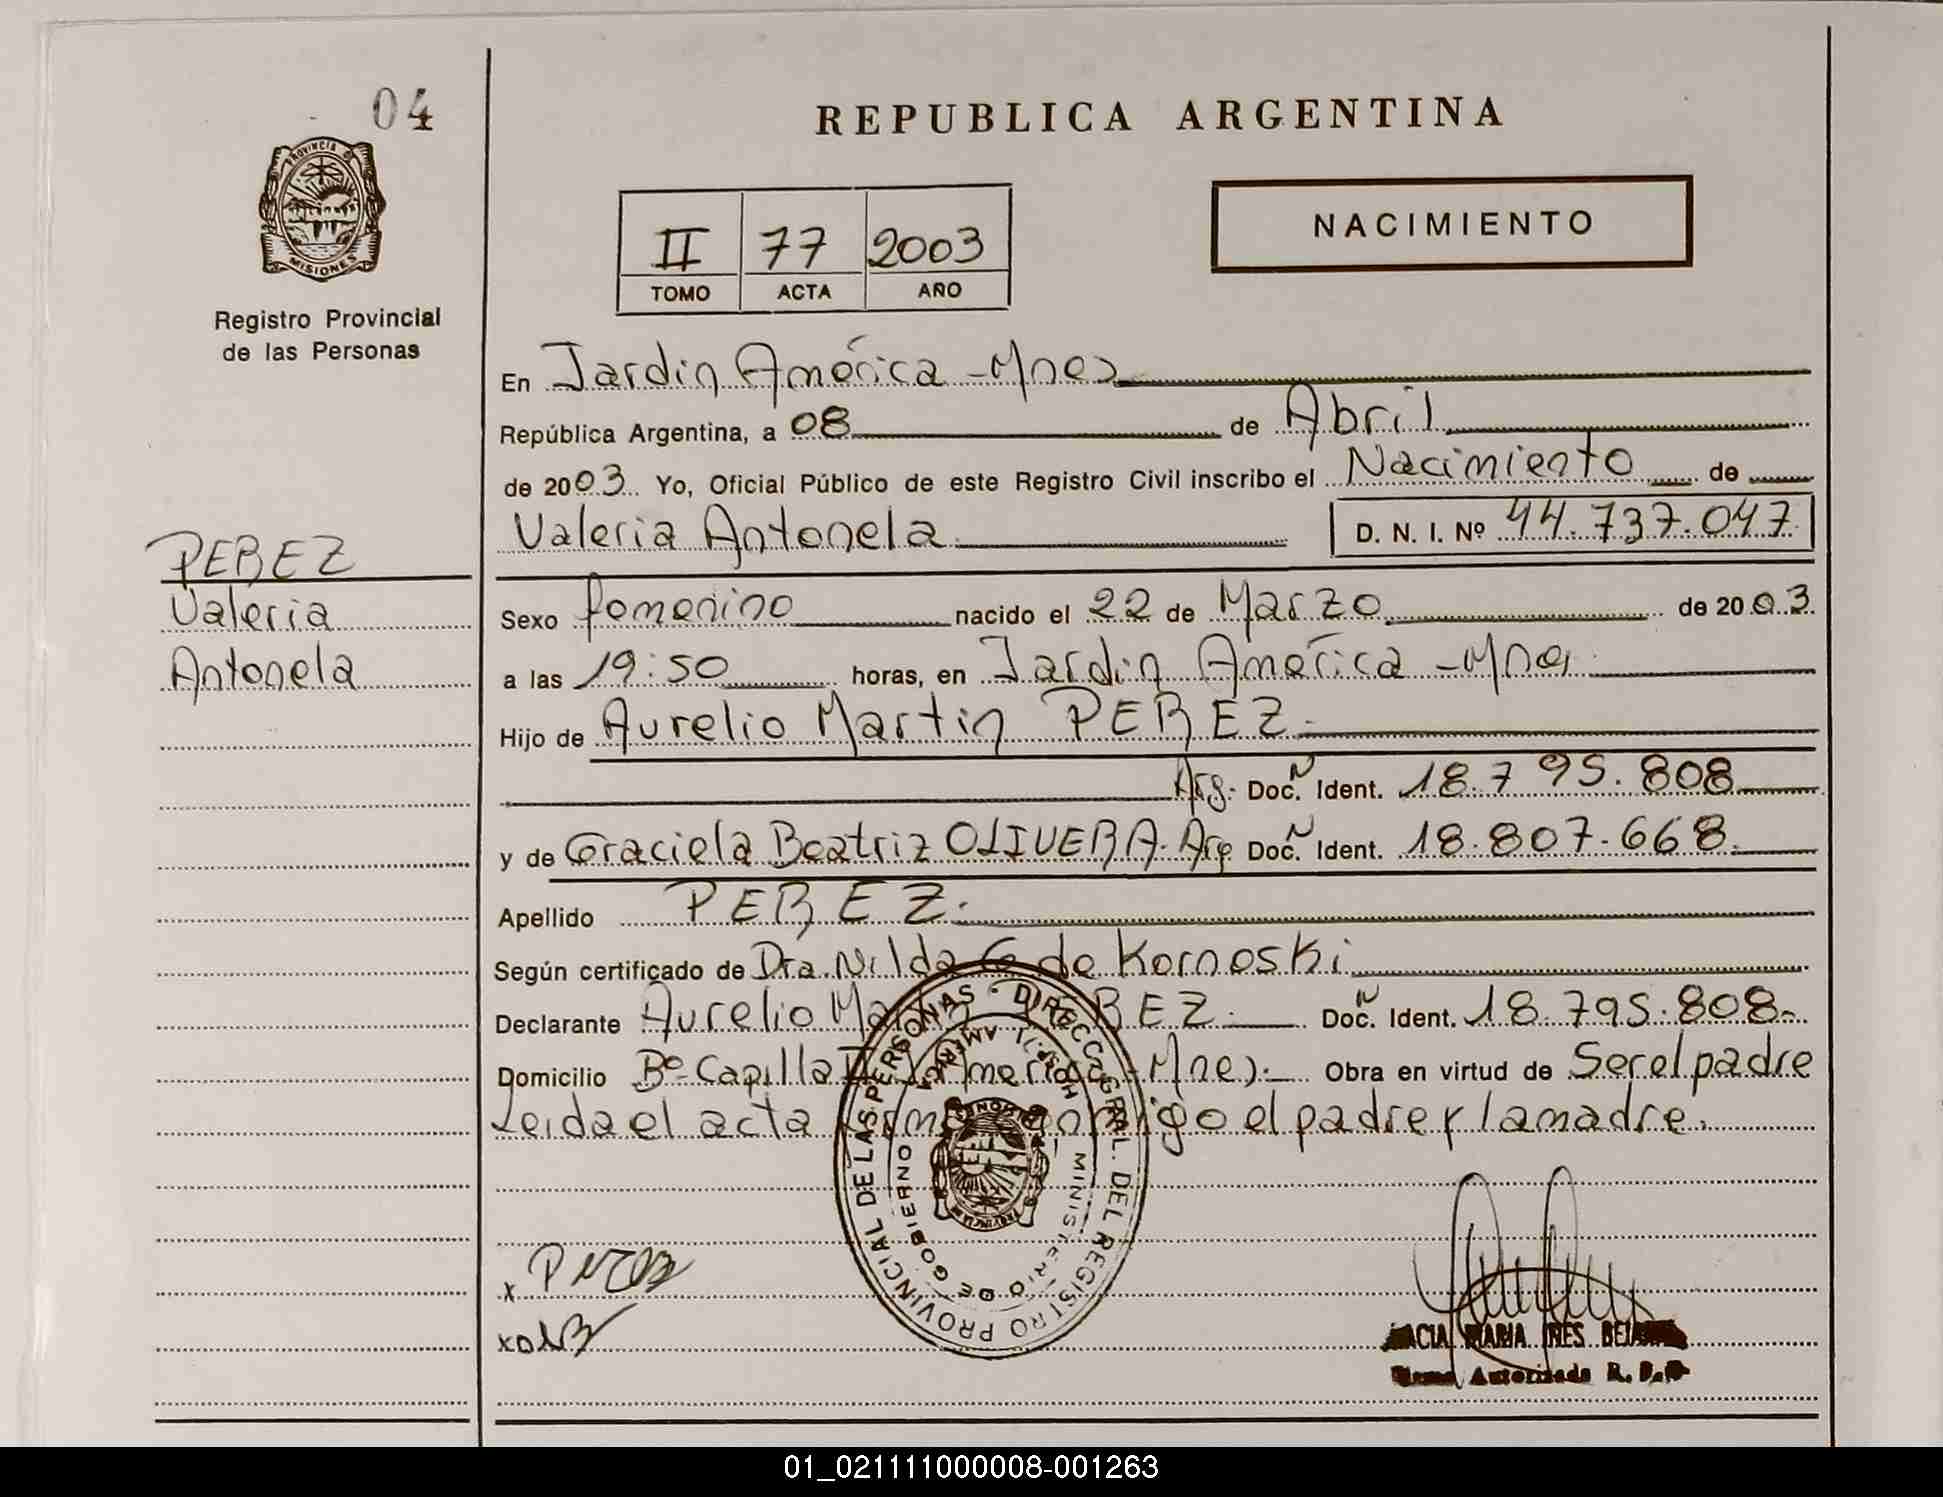 04
REPUBLICA ARGENTINA
PROVINCIA DE
MISIONES
Registro Provincial
de las Personas
II 77 2003
TOMO ACTA AÑO
NACIMIENTO
En Jardin América - Mnes
República Argentina, a 08 de Abril
de 2003. Yo, Oficial Público de este Registro Civil inscribo el Nacimiento de
Valeria Antonela D. N. I. Nº 44.737.047
PEREZ
Valeria
Antonela
Sexo femenino nacido el 22 de Marzo de 2003.
a las 19:50 horas, en Jardin América - Mnes
Hijo de Aurelio Martin PEREZ.
Arg. Doc. N Ident. 18.795.808
y de Graciela Beatriz OLIVERA. Arg Doc. N Ident. 18.807.668.
Apellido PEREZ.
Según certificado de Dra. Nilda G de Kornoski
Declarante Aurelio PEREZ. Doc. N Ident. 18.795.808.
Domicilio Bº Capilla America - Mnes. Obra en virtud de Ser el padre
Leida el acta conmigo el padre y la madre.
DIRECC. GRAL. DEL REGISTRO PROVINCIAL DE LAS PERSONAS
MINISTERIO DE GOBIERNO
x
x
MARIA INES
Autorizada R. P. P
01_021111000008-001263